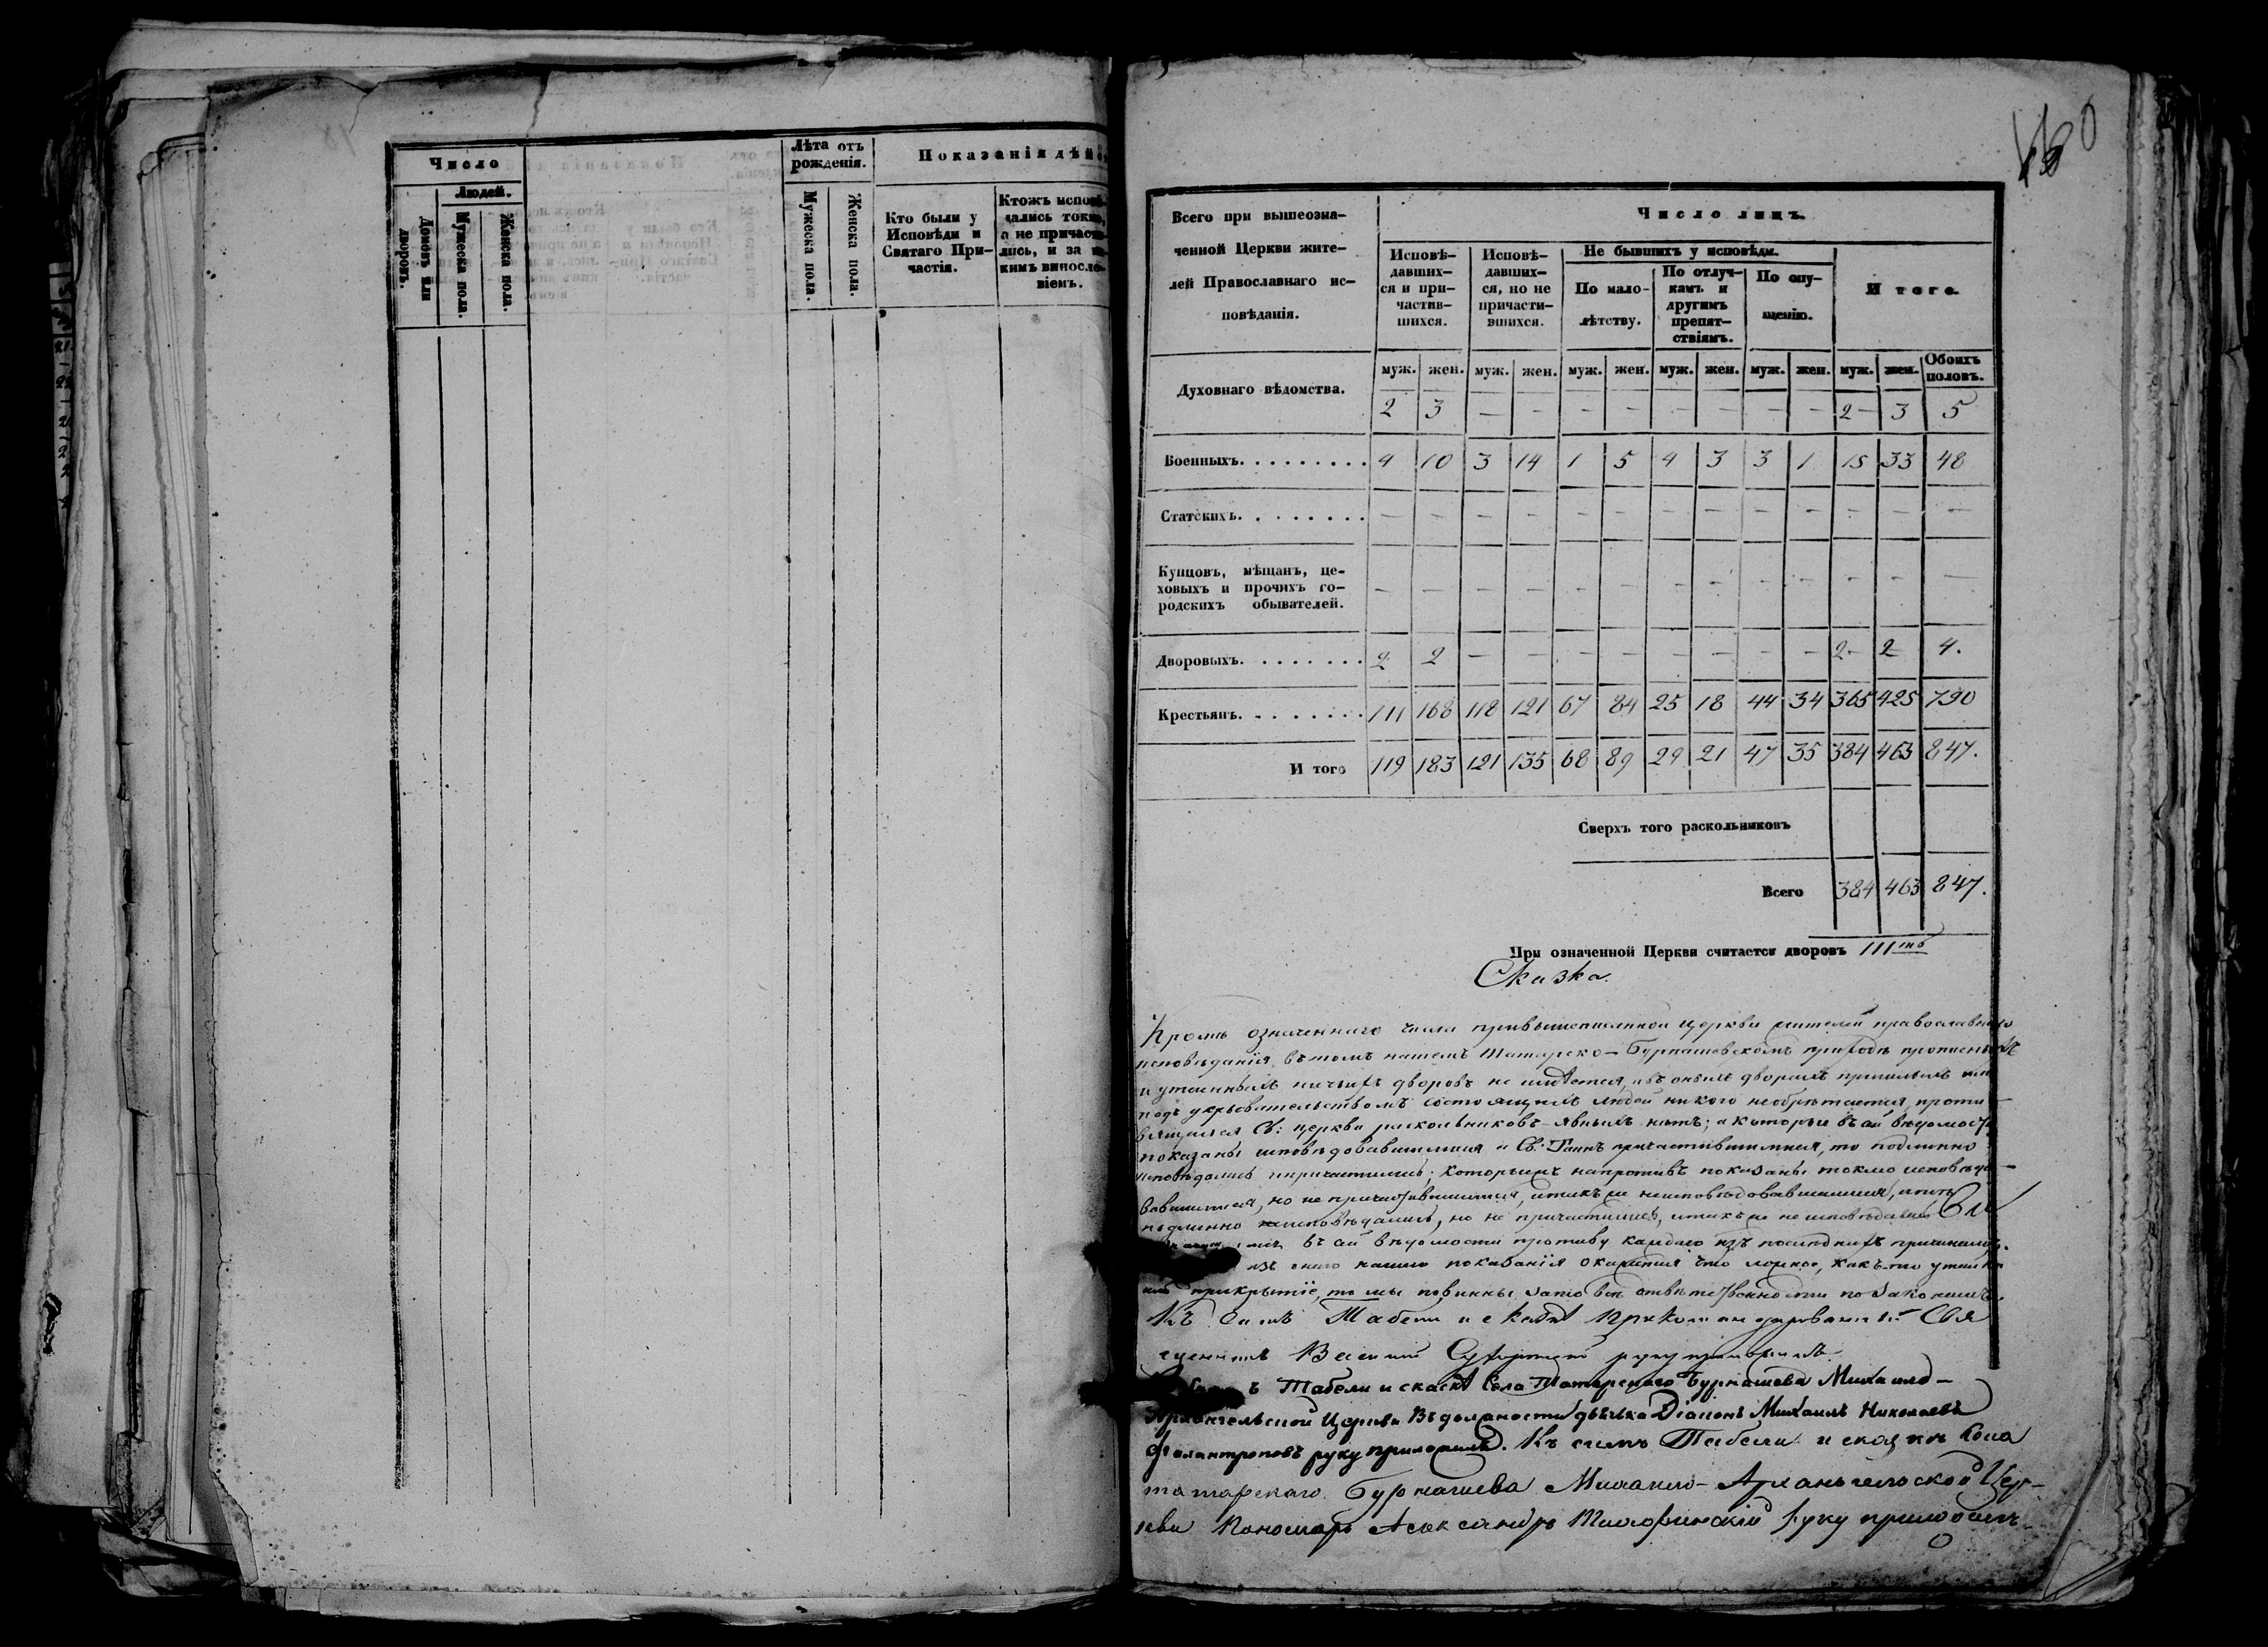 Число
Лѣта отъ
рожденія.
Показанія дѣйс
Людей.
Домовъ или
дворовъ.
Мужеска пола.
Женска пола.
Мужеска пола.
Женска пола.
Кто были у
Исповѣди и
Святаго При-
частія.
Ктожъ исповѣ-
дались токмо,
а не причасти-
лись, и за ка-
кимъ винослo-
віемъ.
Всего при вышеозна-
ченной Церкви жите-
лей Православнаго ис-
повѣданія.
Число лицъ.
Исповѣ-
давших-
ся и при-
частив-
шихся.
Исповѣ-
давших-
ся, но не
причасти-
вшихся.
Не бывшихъ у исповѣди.
По мало-
лѣтству.
По отлуч-
камъ и
другимъ
препят-
ствіямъ.
По опу-
щенію.
И того.
муж. жен. муж. жен. муж. жен. муж. жен. муж. жен. муж. жен. Обоихъ половъ.
Духовнаго вѣдомства. 2 3 — — — — — — — — 2 3 5
Военныхъ. 4 10 3 14 1 5 4 3 3 1 15 33 48
Статскихъ. — — — — — — — — — — — — —
Купцовъ, мѣщанъ, це-
ховыхъ и прочихъ го-
родскихъ обывателей. — — — — — — — — — — — — —
Дворовыхъ. 2 2 — — — — — — — — 2 2 4.
Крестьянъ. 111 168 118 121 67 84 25 18 44 34 365 425 790
И того 119 183 121 135 68 89 29 21 47 35 384 463 847.
Сверхъ того раскольниковъ
Всего 384 463 847.
При означенной Церкви считается дворовъ 111
Сказка.
Кромѣ означеннаго числа при вышеписанной церкви жителей православнаго
исповѣданія въ томъ нашемъ Татарско-Бурнашевскомъ приходѣ прописныхъ
и утаенныхъ ничьихъ дворовъ не имѣется, въ оныхъ дворахъ пришлыхъ
подъ укрывательствомъ состоящихъ людей никого необрѣтается, проти-
вящихся Св: церкви раскольниковъ явныхъ нѣтъ; а которые въ сей вѣдомости
показаны исповѣдовавшимися и Св. Таинъ причастившимися, то подлинно
исповѣдались и причастились; которыежъ напротивъ показаны токмо исповѣдо-
вавшимися, но не причастившимися, и такъ же неисповѣдовавшимися,
подлинно исповѣдались, но не причастились, и такъ же не исповѣдались
въ сей вѣдомости противу каждаго изъ послѣднихъ причинамъ.
изъ сего нашего показанія окажется что ложное, какъ-то утайка
или прикрытіе, то мы повинны за то въ отвѣтственности по законамъ.
Къ симъ Табели и сказкѣ Прикомандированный Свя
щенникъ Василий руку приложилъ.
Табели и сказкѣ Села Татарскаго Бурнашева Михаило-
Архангельской Церкви Въ должности дьячка Діаконъ Михаилъ Николаевъ
Фолантроповъ руку приложилъ. Къ симъ Табели и сказкѣ Села
татарскаго Бурнашева Михаило-Архангельской Цер-
кви Пономарь Александръ руку приложилъ